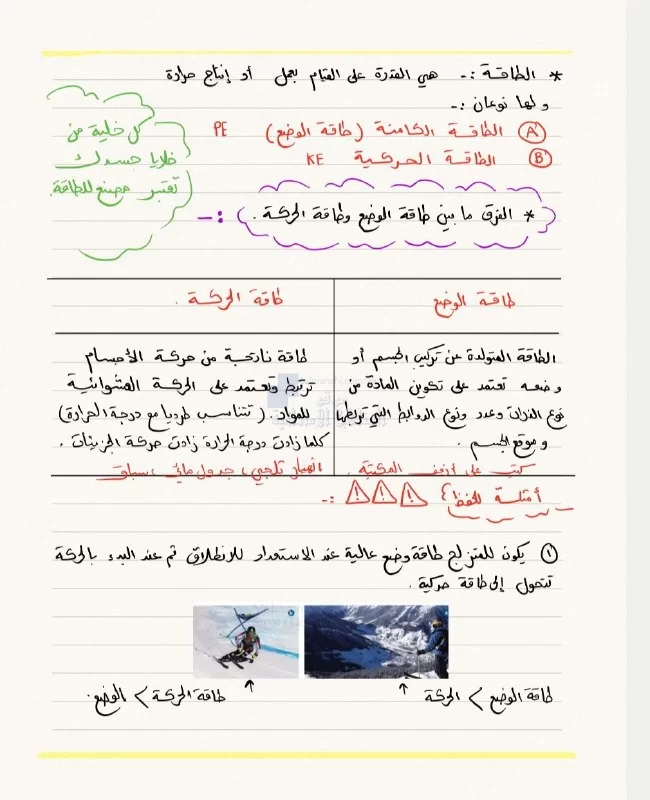 * الطاقة :- هي القدرة على القيام بعمل أو إنتاج حرارة
و لها نوعان :-
A الطاقة الكامنة (طاقة الوضع) PE
B الطاقة الحركية KE
كل خلية من
خلايا جسدك
تعتبر مصنع للطاقة.
* الفرق ما بين طاقة الوضع وطاقة الحركة . :-
طاقة الوضع
الطاقة المتولدة عن تركيب الجسم أو
وضعه تعتمد على تكوين المادة من
نوع الذرات وعدد ونوع الروابط التي تربطها
وموقع الجسم .
كتب على أرفف المكتبة .
طاقة الحركة .
طاقة ناتجة من حركة الأجسام
ترتبط وتعتمد على الحركة العشوائية
للمواد . (تتناسب طرديا مع درجة الحرارة)
كلما زادت درجة الحرارة زادت حركة الجزيئات .
انهيار ثلجي ، جدول مائي ، سباق
أمثلة للحفظ } :-
١ يكون للمتزلج طاقة وضع عالية عند الاستعداد للانطلاق ثم عند البدء بالحركة
تتحول إلى طاقة حركية .
طاقة الوضع > الحركة
طاقة الحركة > الوضع .